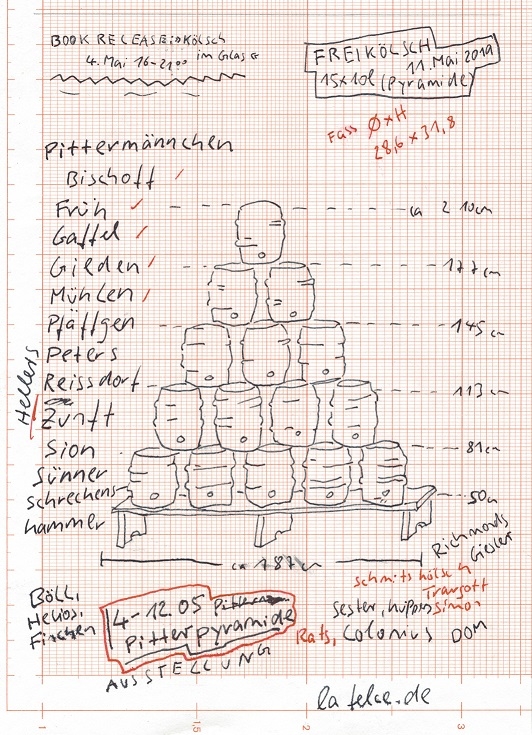 BOOK RELEASE: Kölsch
im Glas
4. Mai 16-21:00
FREIKÖLSCH
11. Mai 2019
15x10l (Pyramide)
Fass Ø x H
28,6 x 31,8
Pittermännchen
Bischoff
Früh
Gaffel
Gilden
Mühlen
Pfäffgen
Peters
Reissdorf
Zunft
Sion
Sünner
Schreckens-
hammer
Hellers
ca 210cm
177cm
145c
113cm
81cm
50cm
ca 187cm
Richmods
Giesler
Schmits Kölsch
Traugott
Simon
Sester, Küppers
Rats, Colonius DOM
Böll,
Helios,
4-12.05
Pitterpyramide
AUSSTELLUNG
1
1,5
2
3